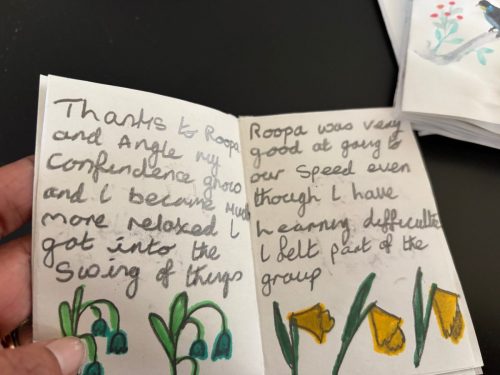 Thanks to Roopa
and Angle my
Confindence grow
and I became much
more relaxed I
got into the
Swing of things
Roopa was very
good at going to
our Speed even
though I have
Learning difficulte
I felt part of the
group